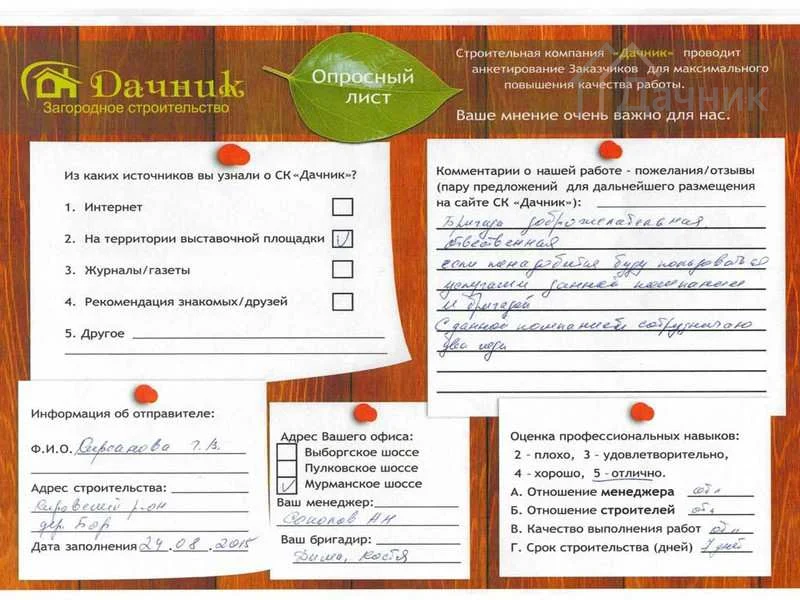 Дачник
Загородное строительство
Опросный
лист
Строительная компания «Дачник» проводит
анкетирование Заказчиков для максимального
повышения качества работы.
Ваше мнение очень важно для нас.
Дачник
Из каких источников вы узнали о СК «Дачник»?
1. Интернет
2. На территории выставочной площадки
3. Журналы/газеты
4. Рекомендация знакомых/друзей
5. Другое
Комментарии о нашей работе - пожелания/отзывы
(пару предложений для дальнейшего размещения
на сайте СК «Дачник»):
Бригада доброжелательная,
отвественная
если понадобится буду пользоваться
услугами данной компании
и бригадой
С данной компанией сотрудничаю
два года
Информация об отправителе:
Ф.И.О. Г.В.
Адрес строительства:
Кировский р-он
дер. Бор
Дата заполнения 24.08.2015
Адрес Вашего офиса:
Выборгское шоссе
Пулковское шоссе
Мурманское шоссе
Ваш менеджер:
Соколов АН
Ваш бригадир:
Дима, Костя
Оценка профессиональных навыков:
2 - плохо, 3 - удовлетворительно,
4 - хорошо, 5 - отлично.
А. Отношение менеджера отл
Б. Отношение строителей отл
В. Качество выполнения работ отл
Г. Срок строительства (дней) 7 дней